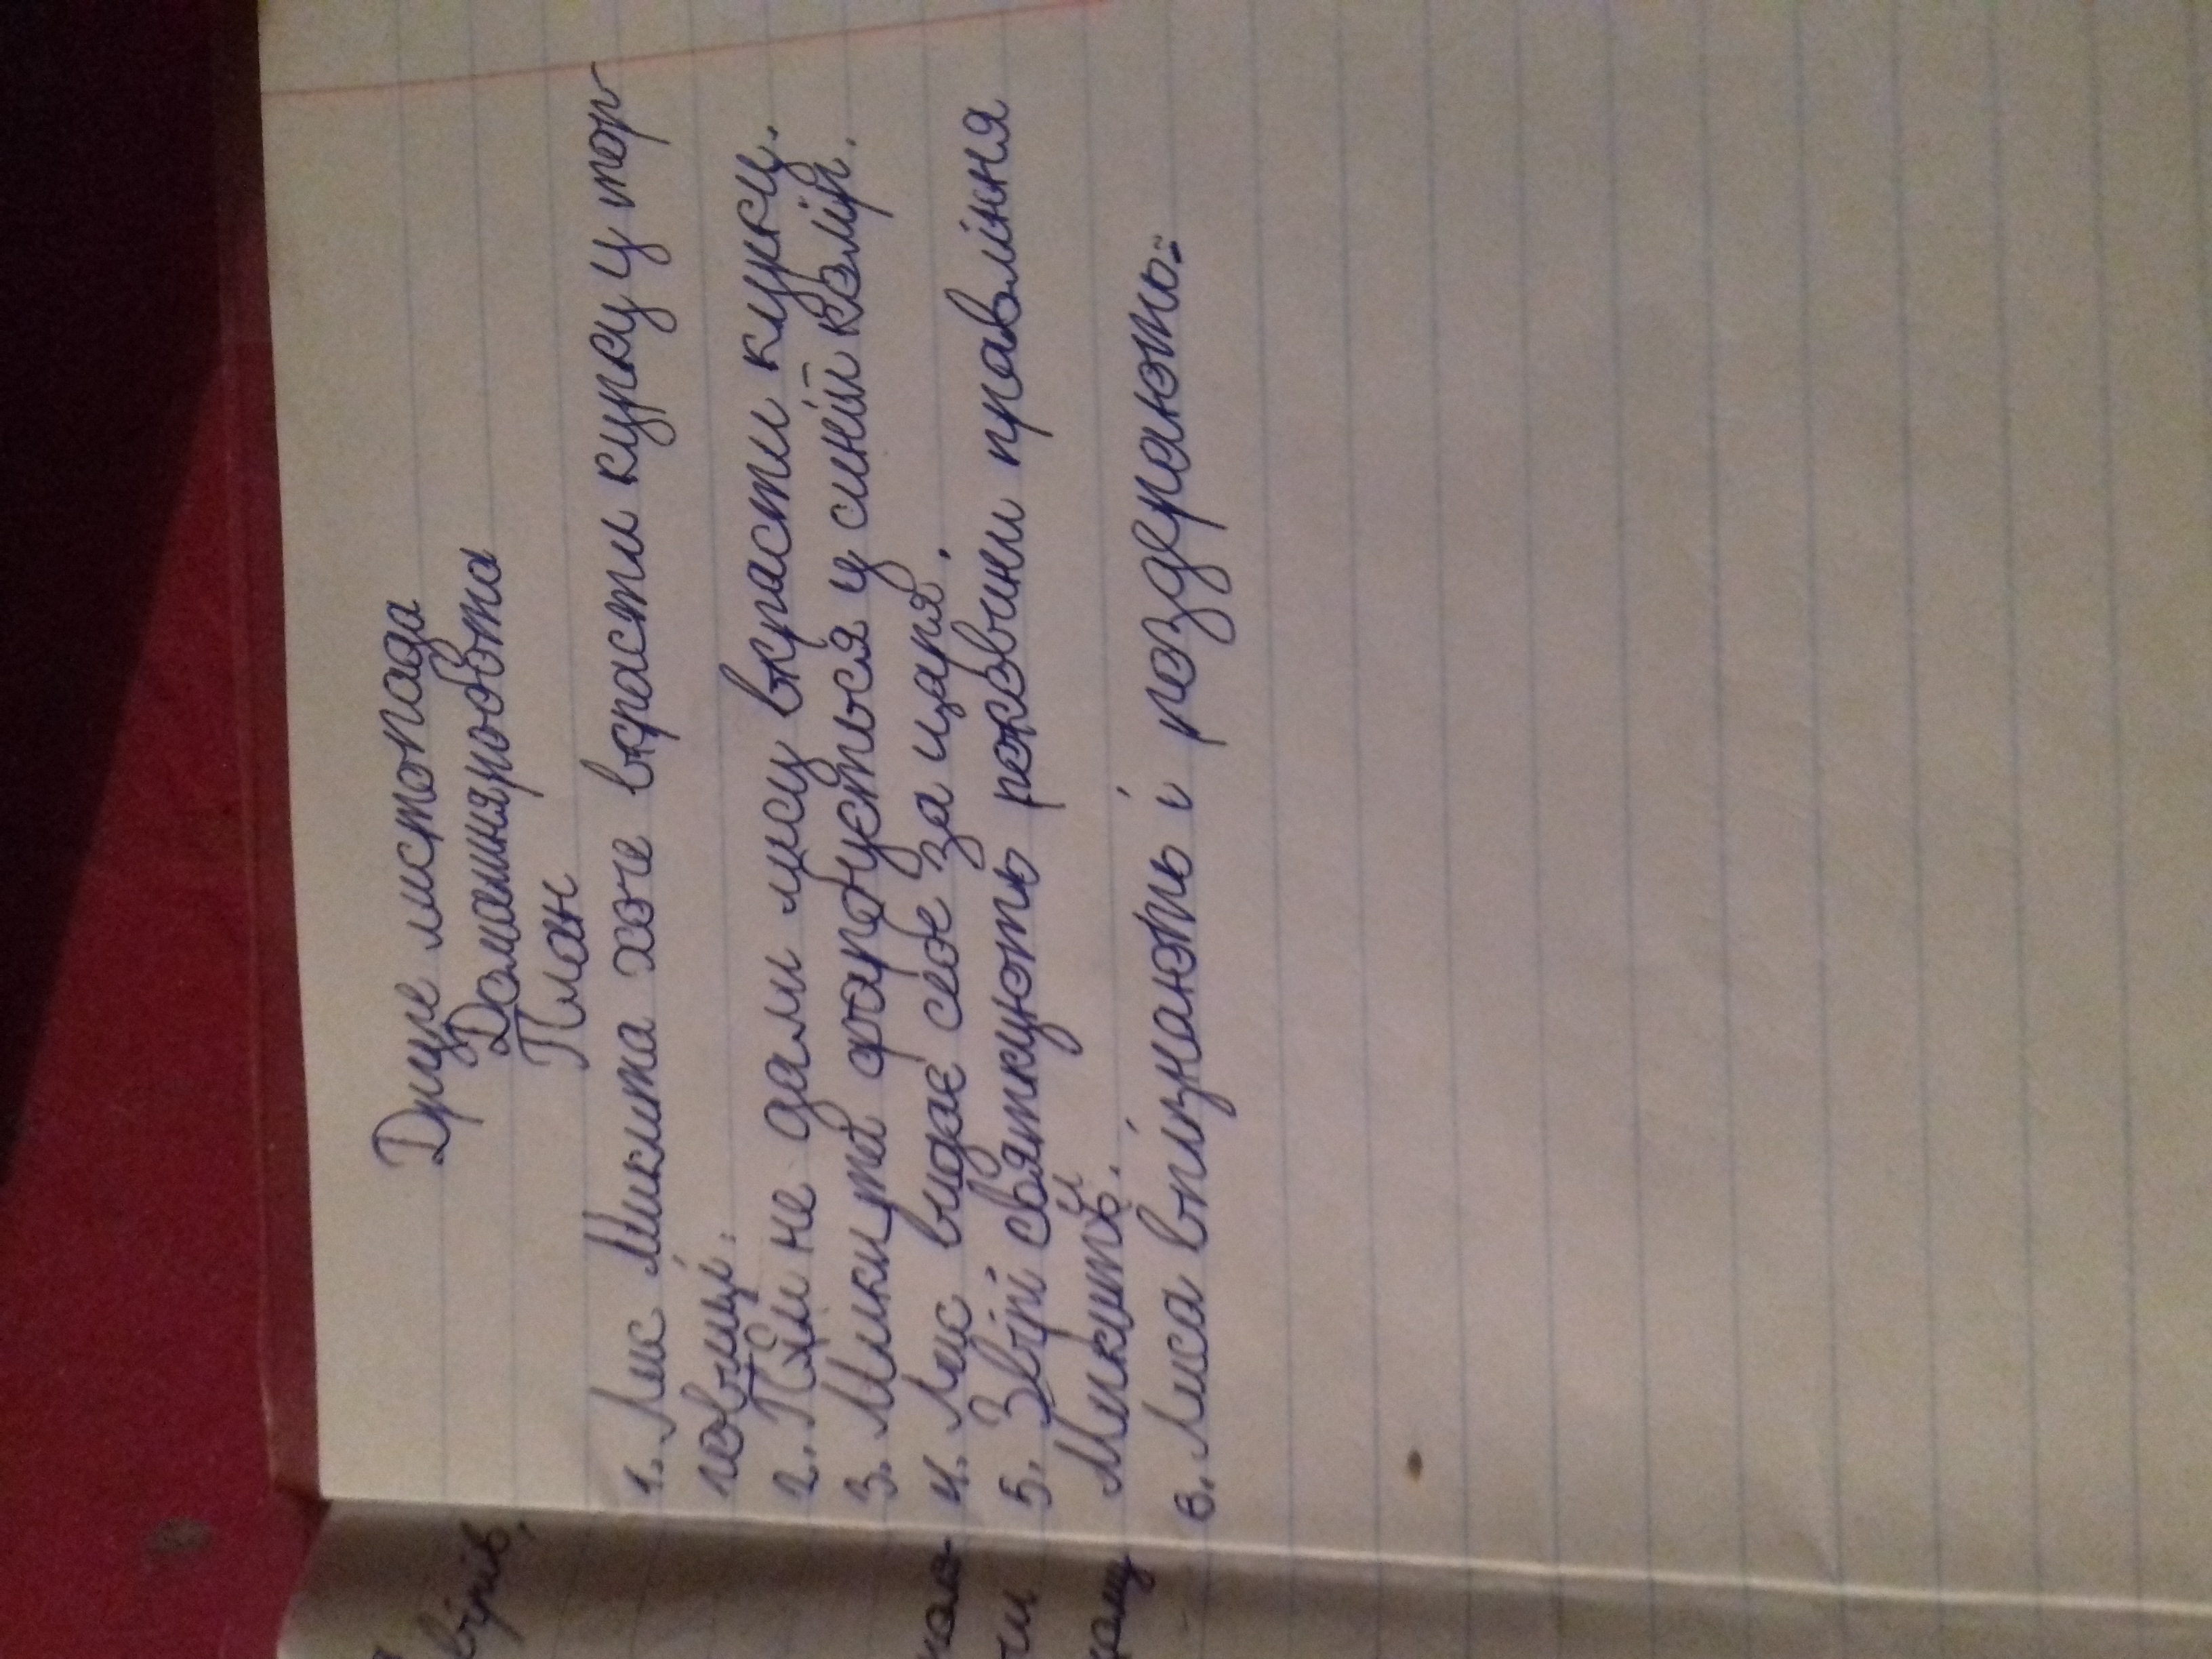 Друге листопада
Домашня робота
План
1. Лис Микита хоче вкрасти курку у тор
говиці.
2. Пси не дали лису вкрасти курку.
3. Микита фарбується у синій колір.
4. Лис видає себе за царя.
5. Звірі святкують роковини правління
Микити.
6. Лиса впізнають і роздирають.